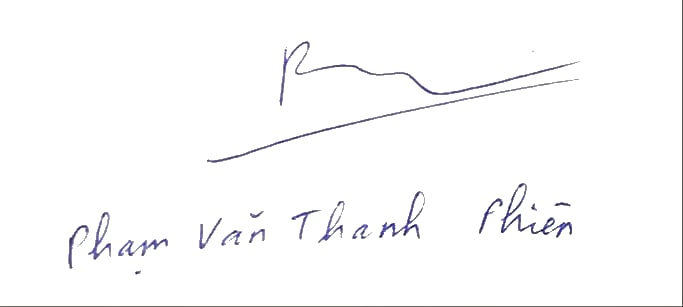 Phạm Văn Thanh Phiên